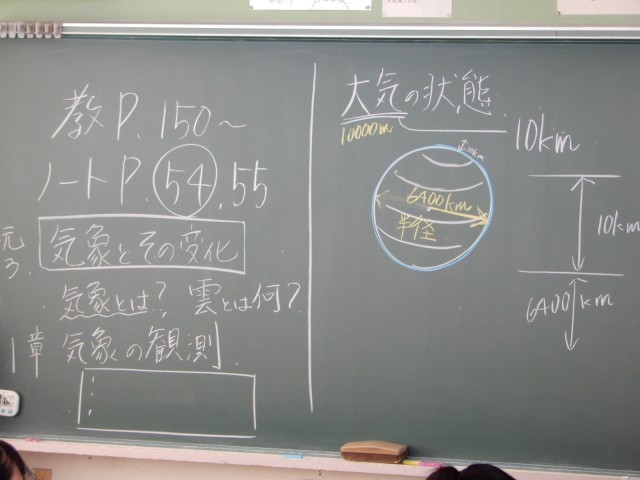 教P.150~
ノートP.54.55
元
3.
気象とその変化
気象とは? 雲とは何?
1章 気象の観測
大気の状態
10000m
10km
10km
6400km
半径
10km
6400km